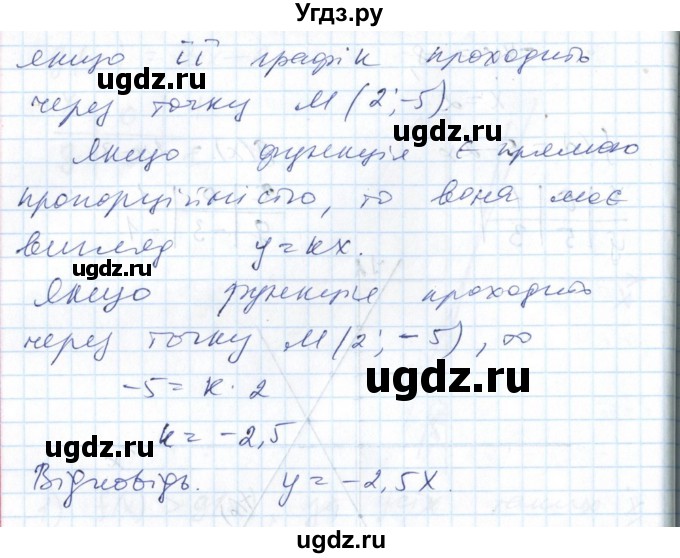 Угдз.ру
якщо її графік проходить
ugdz.ru
через точку М(2;-5).
ugdz.ru
Якщо функція є прямою
пропорційністю, то вона має
вигляд y=kx.
ugdz.ru
Якщо функція проходить
через точку М(2;-5), то
ugdz.ru
-5=k·2
k=-2,5
ugdz.ru
Відповідь. y=-2,5x.
ugdz.ru